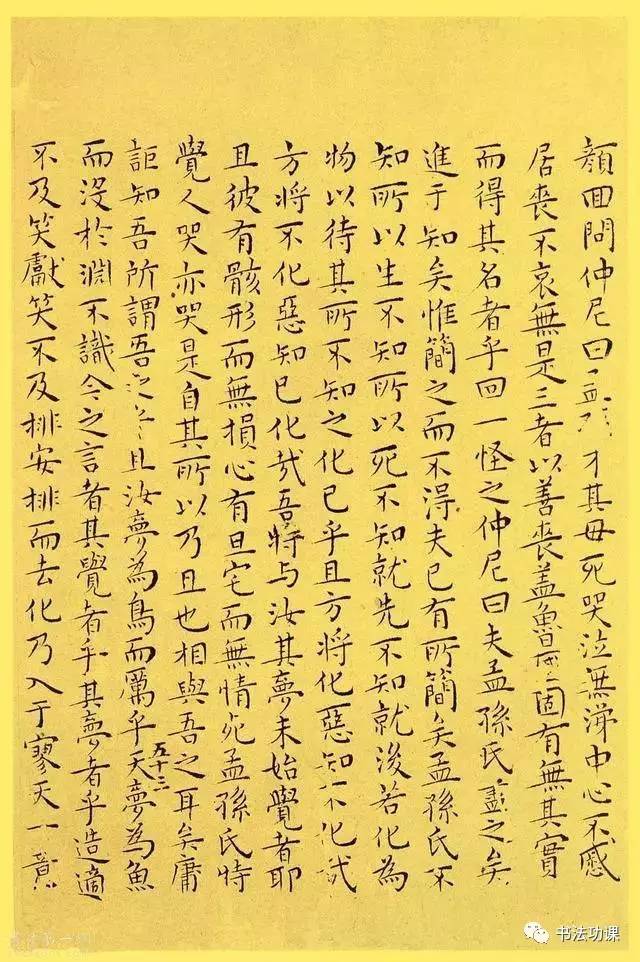 顔回問仲尼曰才其母死哭泣無涕中心不慼
居喪不哀無是三者以善喪盖魯固有無其實
而得其名者乎回一怪之仲尼曰夫孟孫氏盡之矣
進于知矣惟簡之而不淂夫已有所簡矣孟孫氏不
知所以生不知所以死不知就先不知就後若化為
物以待其所不知之化已乎且方將化惡知不化哉
方將不化惡知已化哉吾特与汝其夢未始覺者耶
且彼有骸形而無損心有旦宅而無情死孟孫氏特
覺人哭亦哭是自其所以乃且也相與吾之耳矣庸
詎知吾所謂吾之乎且汝夢為鳥而厲乎天夢為魚
五十三
而沒於淵不識今之言者其覺者乎其夢者乎造適
不及笑獻笑不及排安排而去化乃入于寥天一
书法功课